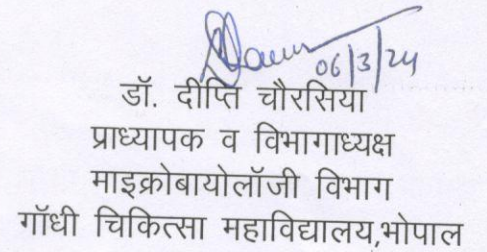 06/3/24
डॉ. दीप्ति चौरसिया
प्राध्यापक व विभागाध्यक्ष
माइक्रोबायोलॉजी विभाग
गॉधी चिकित्सा महाविद्यालय,भोपाल